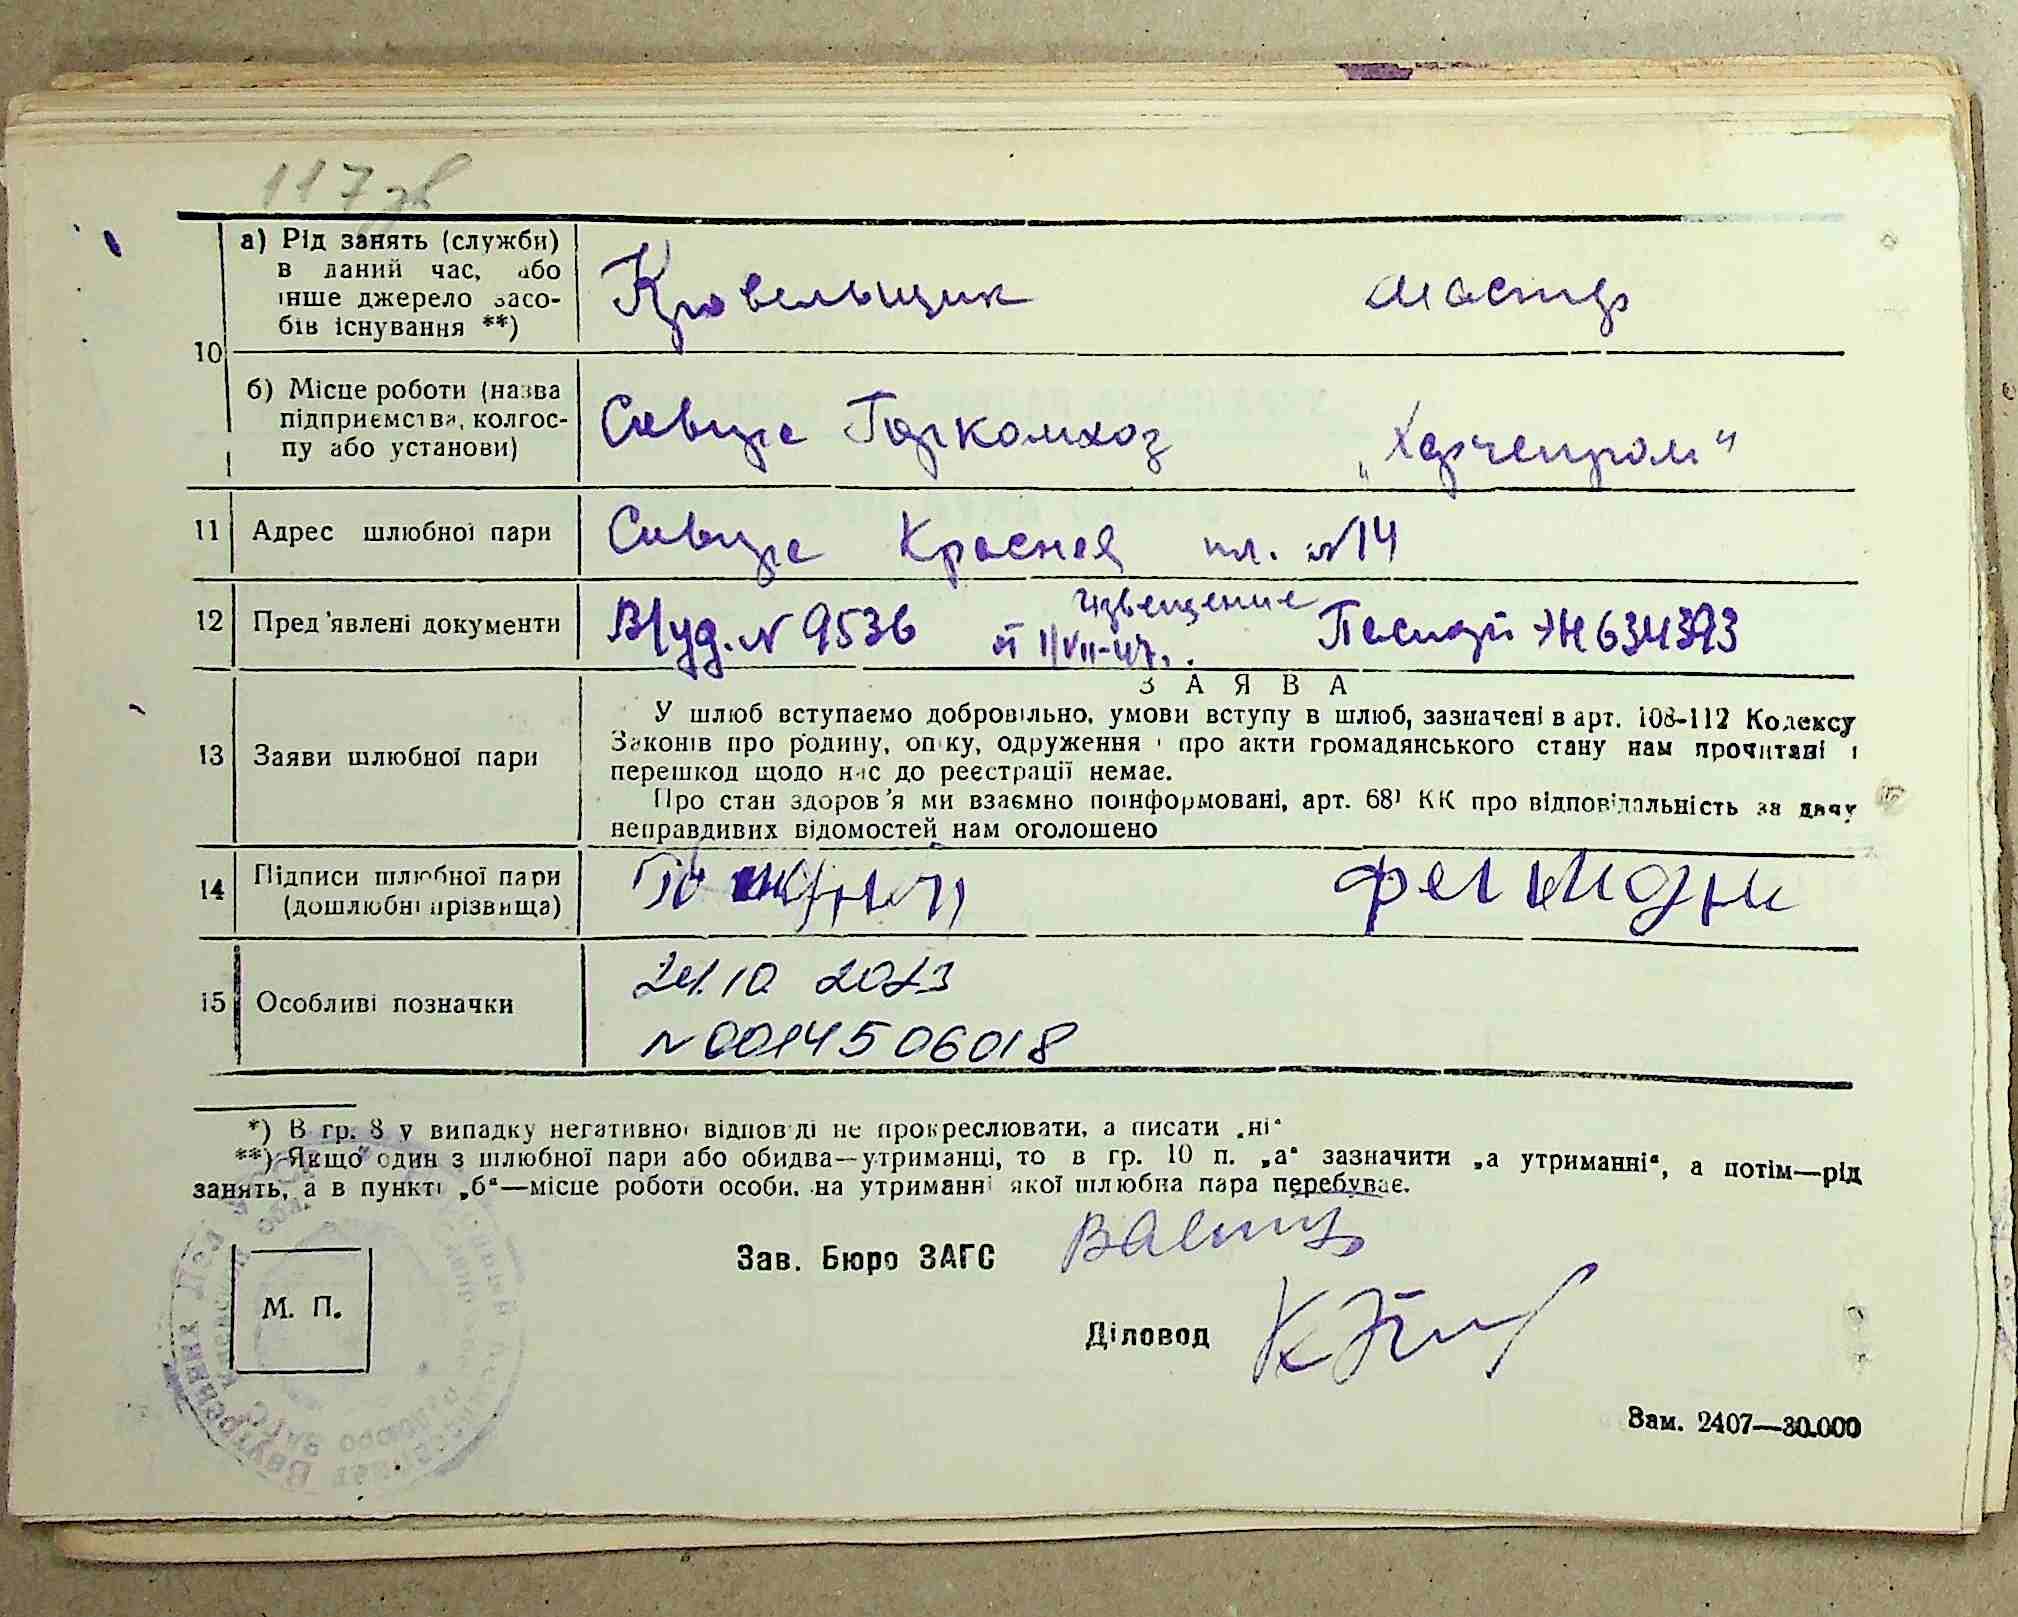 117 зв
10
а) Рід занять (служби)
в даний час, або
інше джерело засо-
бів існування **)
Кровельщик мастер
б) Місце роботи (назва
підприємства, колгос-
пу або установи)
Сквира Горкомхоз „Харчепром"
11 Адрес шлюбної пари Сквира Красная пл. №14
12 Пред'явлені документи В/уд. № 9536 извещение
от 11/VII-47. Паспорт ЖН 634393
З А Я В А
13 Заяви шлюбної пари
У шлюб вступаємо добровільно, умови вступу в шлюб, зазначені в арт. 108-112 Кодексу
Законів про родину, опіку, одруження і про акти громадянського стану нам прочитані і
перешкод щодо нас до реєстрації немає.
Про стан здоров'я ми взаємно поінформовані, арт. 68¹ КК про відповідальність за дачу
неправдивих відомостей нам оголошено
14 Підписи шлюбної пари
(дошлюбні прізвища)
15 Особливі позначки
24.10 2023
№ 0014506018
*) В гр. 8 у випадку негативної відповіді не прокреслювати, а писати „ні"
**) Якщо один з шлюбної пари або обидва—утриманці, то в гр. 10 п. „а" зазначити „а утриманні", а потім—рід
занять, а в пункті „б"—місце роботи особи, на утриманні якої шлюбна пара перебуває.
Зав. Бюро ЗАГС
М. П.
Діловод
Зам. 2407—30.000